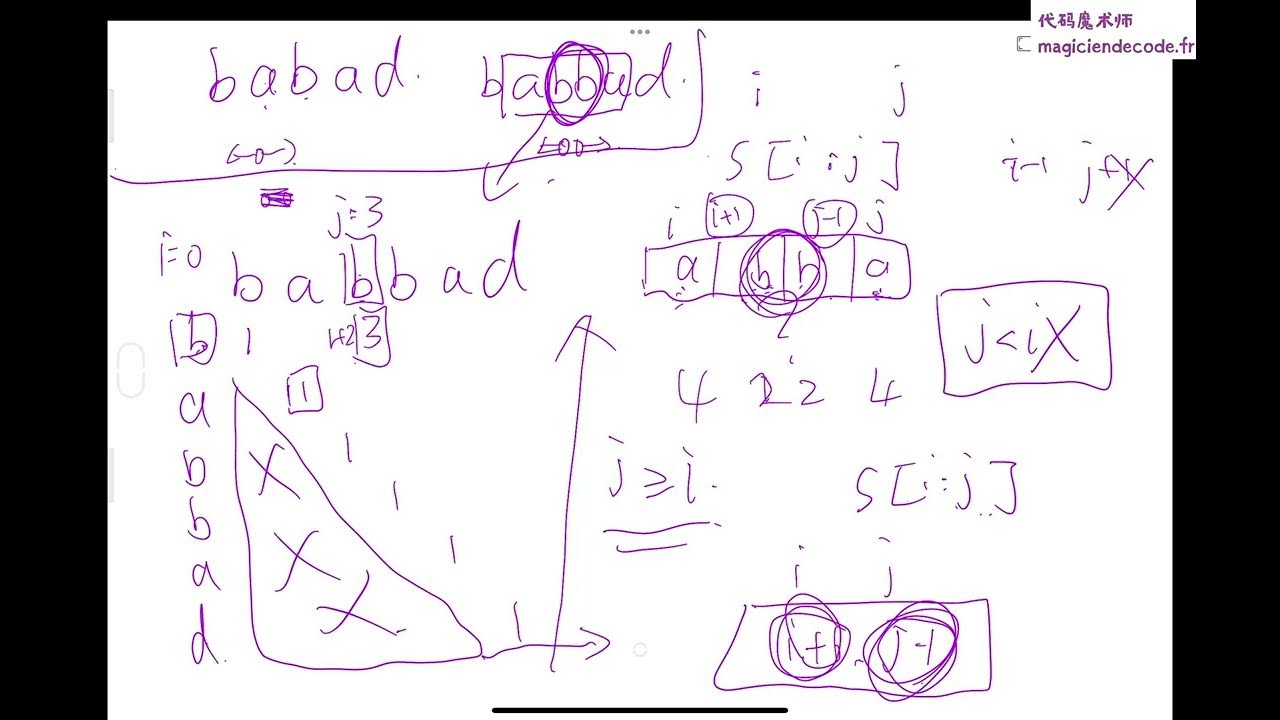 代码魔术师
magiciendecode.fr
babad. babbad.
i j
s[i:j]
i-1
j=3
i=0
i i+1 j-1 j
babbad
a b b a
b 1 1+2 3
j<i X
a 1
4 2 2 4
b 1
j≥i.
s[i:j]
b 1
a 1
i j
d. 1
i+1 j-1